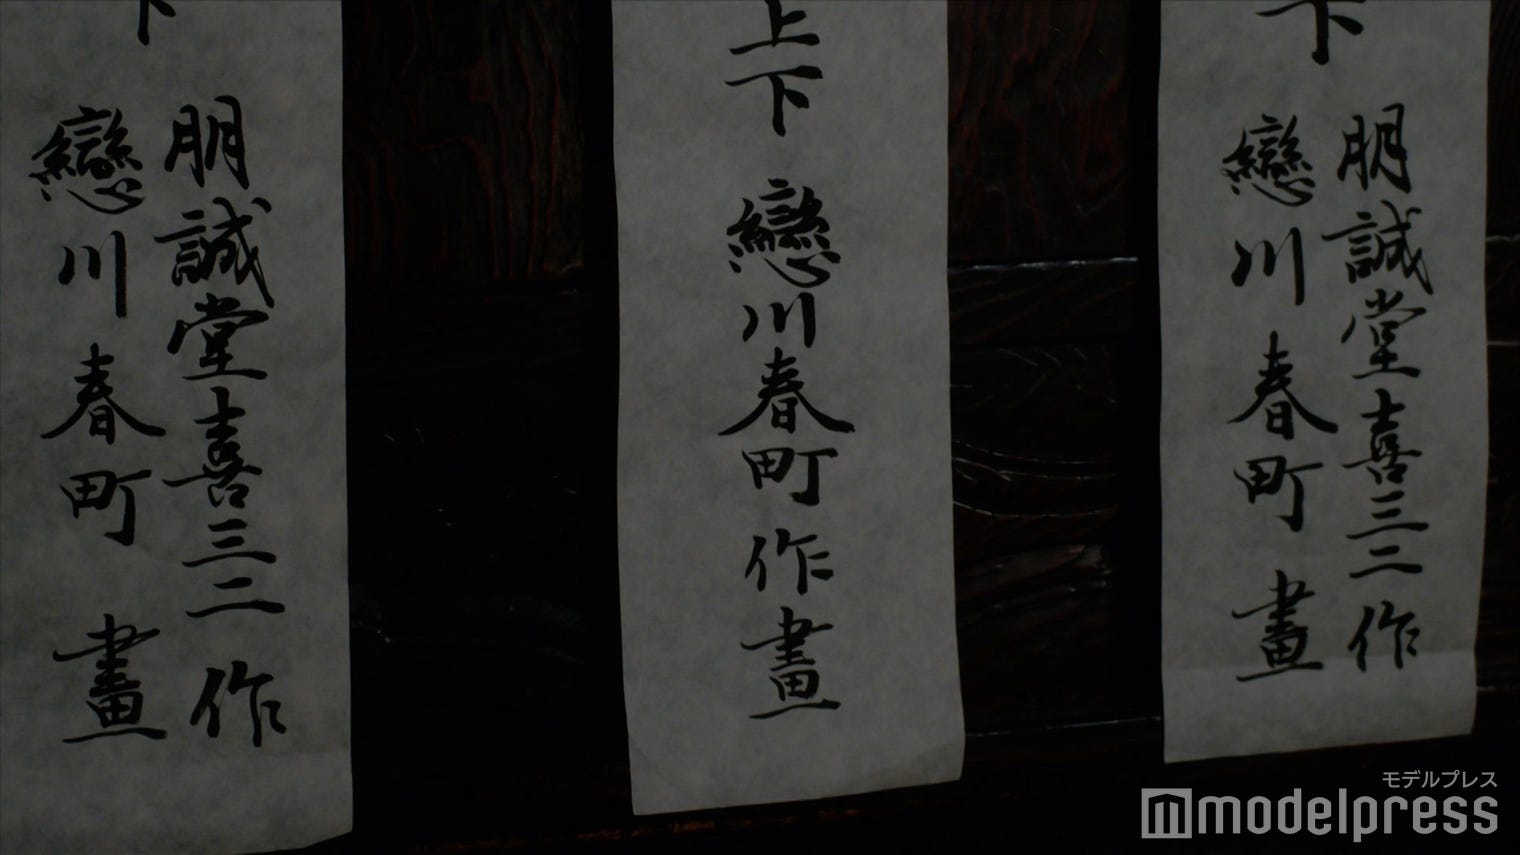 下
朋誠堂喜三二 作
戀川春町 畫
上下 戀川春町 作畫
下
朋誠堂喜三二 作
戀川春町 畫
モデルプレス
modelpress